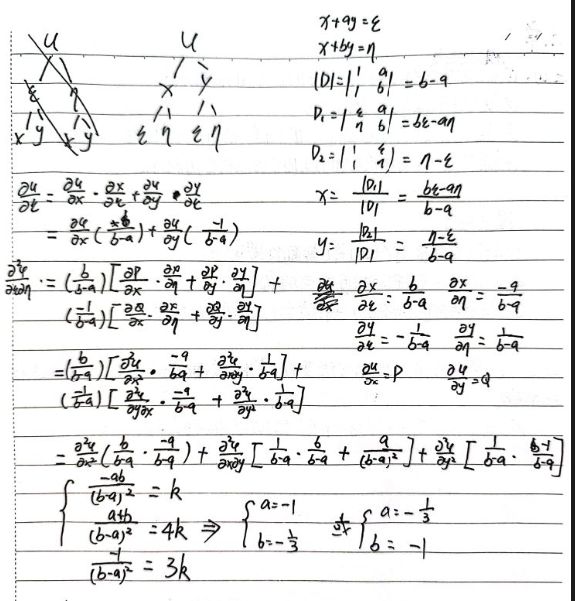 x+ay=ξ
x+by=η
|D|=|1 a 1 b|=b-a
D₁=|ξ a η b|=bξ-aη
D₂=|1 ξ 1 η|=η-ξ
x=|D₁|/|D|=(bξ-aη)/(b-a)
y=|D₂|/|D|=(η-ξ)/(b-a)
u
ξ η
x y x y
u
x y
ξ η ξ η
∂u/∂ξ=∂u/∂x·∂x/∂ξ+∂u/∂y·∂y/∂ξ
=∂u/∂x(b/(b-a))+∂u/∂y(-1/(b-a))
∂²u/∂ξ∂η=(b/(b-a))[∂P/∂x·∂x/∂η+∂P/∂y·∂y/∂η]+
(-1/(b-a))[∂Q/∂x·∂x/∂η+∂Q/∂y·∂y/∂η]
∂x/∂ξ=b/(b-a) ∂x/∂η=-a/(b-a)
∂y/∂ξ=-1/(b-a) ∂y/∂η=1/(b-a)
∂u/∂x=P ∂u/∂y=Q
=(b/(b-a))[∂²u/∂x²·-a/(b-a)+∂²u/∂x∂y·1/(b-a)]+
(-1/(b-a))[∂²u/∂y∂x·-a/(b-a)+∂²u/∂y²·1/(b-a)]
=∂²u/∂x²(b/(b-a)·-a/(b-a))+∂²u/∂x∂y[1/(b-a)·b/(b-a)+a/(b-a)²]+∂²u/∂y²[1/(b-a)·-1/(b-a)]
{-ab/(b-a)²=k
(a+b)/(b-a)²=4k ⇒ {a=-1 b=-1/3 或 {a=-1/3 b=-1
-1/(b-a)²=3k